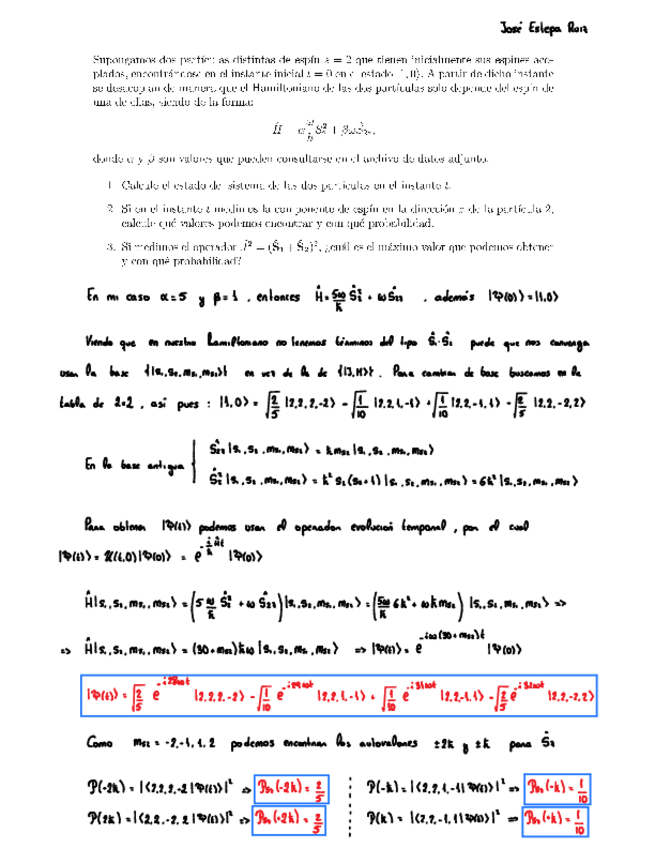 José Estepa Ruiz
Supongamos dos partículas distintas de espín s = 2 que tienen inicialmente sus espines aco-
plados, encontrándose en el instante inicial t = 0 en el estado |1, 0⟩. A partir de dicho instante
se desacoplan de manera que el Hamiltoniano de las dos partículas solo depende del espín de
una de ellas, siendo de la forma:
Ĥ = α ω/ħ Ŝ₂² + βωŜ₂z,
donde α y β son valores que pueden consultarse en el archivo de datos adjunto.
1. Calcule el estado del sistema de las dos partículas en el instante t.
2. Si en el instante t medimos la componente de espín en la dirección z de la partícula 2,
calcule qué valores podemos encontrar y con qué probabilidad.
3. Si medimos el operador Ĵ² = (Ŝ₁ + Ŝ₂)², ¿cuál es el máximo valor que podemos obtener
y con qué probabilidad?
En mi caso α=5 y β=1, entonces Ĥ = 5ω/ħ Ŝ₂² + ωŜ₂z , además |Ψ(0)⟩ = |1,0⟩
Viendo que en nuestro Hamiltoniano no tenemos términos del tipo Ŝ₁·Ŝ₂ puede que nos convenga
usar la base {|s₁,s₂,ms₁,ms₂⟩} en vez de la de {|J,M⟩}. Para cambiar de base buscamos en la
tabla de 2×2, así pues : |1,0⟩ = √(2/5) |2,2,2,-2⟩ - √(1/10) |2,2,1,-1⟩ + √(1/10) |2,2,-1,1⟩ - √(2/5) |2,2,-2,2⟩
En la base antigua { Ŝ₂z |s₁,s₂,ms₁,ms₂⟩ = ħms₂ |s₁,s₂,ms₁,ms₂⟩
Ŝ₂² |s₁,s₂,ms₁,ms₂⟩ = ħ² s₂(s₂+1) |s₁,s₂,ms₁,ms₂⟩ = 6ħ² |s₁,s₂,ms₁,ms₂⟩
Para obtener |Ψ(t)⟩ podemos usar el operador evolución temporal, por el cual
|Ψ(t)⟩ = U(t,0)|Ψ(0)⟩ = e^(-i/ħ Ĥt) |Ψ(0)⟩
Ĥ|s₁,s₂,ms₁,ms₂⟩ = (5 ω/ħ Ŝ₂² + ω Ŝ₂z)|s₁,s₂,ms₁,ms₂⟩ = (5ω/ħ 6ħ² + ωħms₂) |s₁,s₂,ms₁,ms₂⟩ =>
=> Ĥ|s₁,s₂,ms₁,ms₂⟩ = (30+ms₂)ħω |s₁,s₂,ms₁,ms₂⟩ => |Ψ(t)⟩ = e^(-iω(30+ms₂)t) |Ψ(0)⟩
|Ψ(t)⟩ = √(2/5) e^(-i28ωt) |2,2,2,-2⟩ - √(1/10) e^(-i29ωt) |2,2,1,-1⟩ + √(1/10) e^(-i31ωt) |2,2,-1,1⟩ - √(2/5) e^(-i32ωt) |2,2,-2,2⟩
Como ms₂ = -2,-1,1,2 podemos encontrar los autovalores ±2ħ y ±ħ para Ŝ₂
P(-2ħ) = |⟨2,2,2,-2|Ψ(t)⟩|² => Ps₂(-2ħ) = 2/5 P(-ħ) = |⟨2,2,1,-1|Ψ(t)⟩|² => Ps₂(-ħ) = 1/10
P(2ħ) = |⟨2,2,-2,2|Ψ(t)⟩|² => Ps₂(+2ħ) = 2/5 P(ħ) = |⟨2,2,-1,1|Ψ(t)⟩|² => Ps₂(+ħ) = 1/10